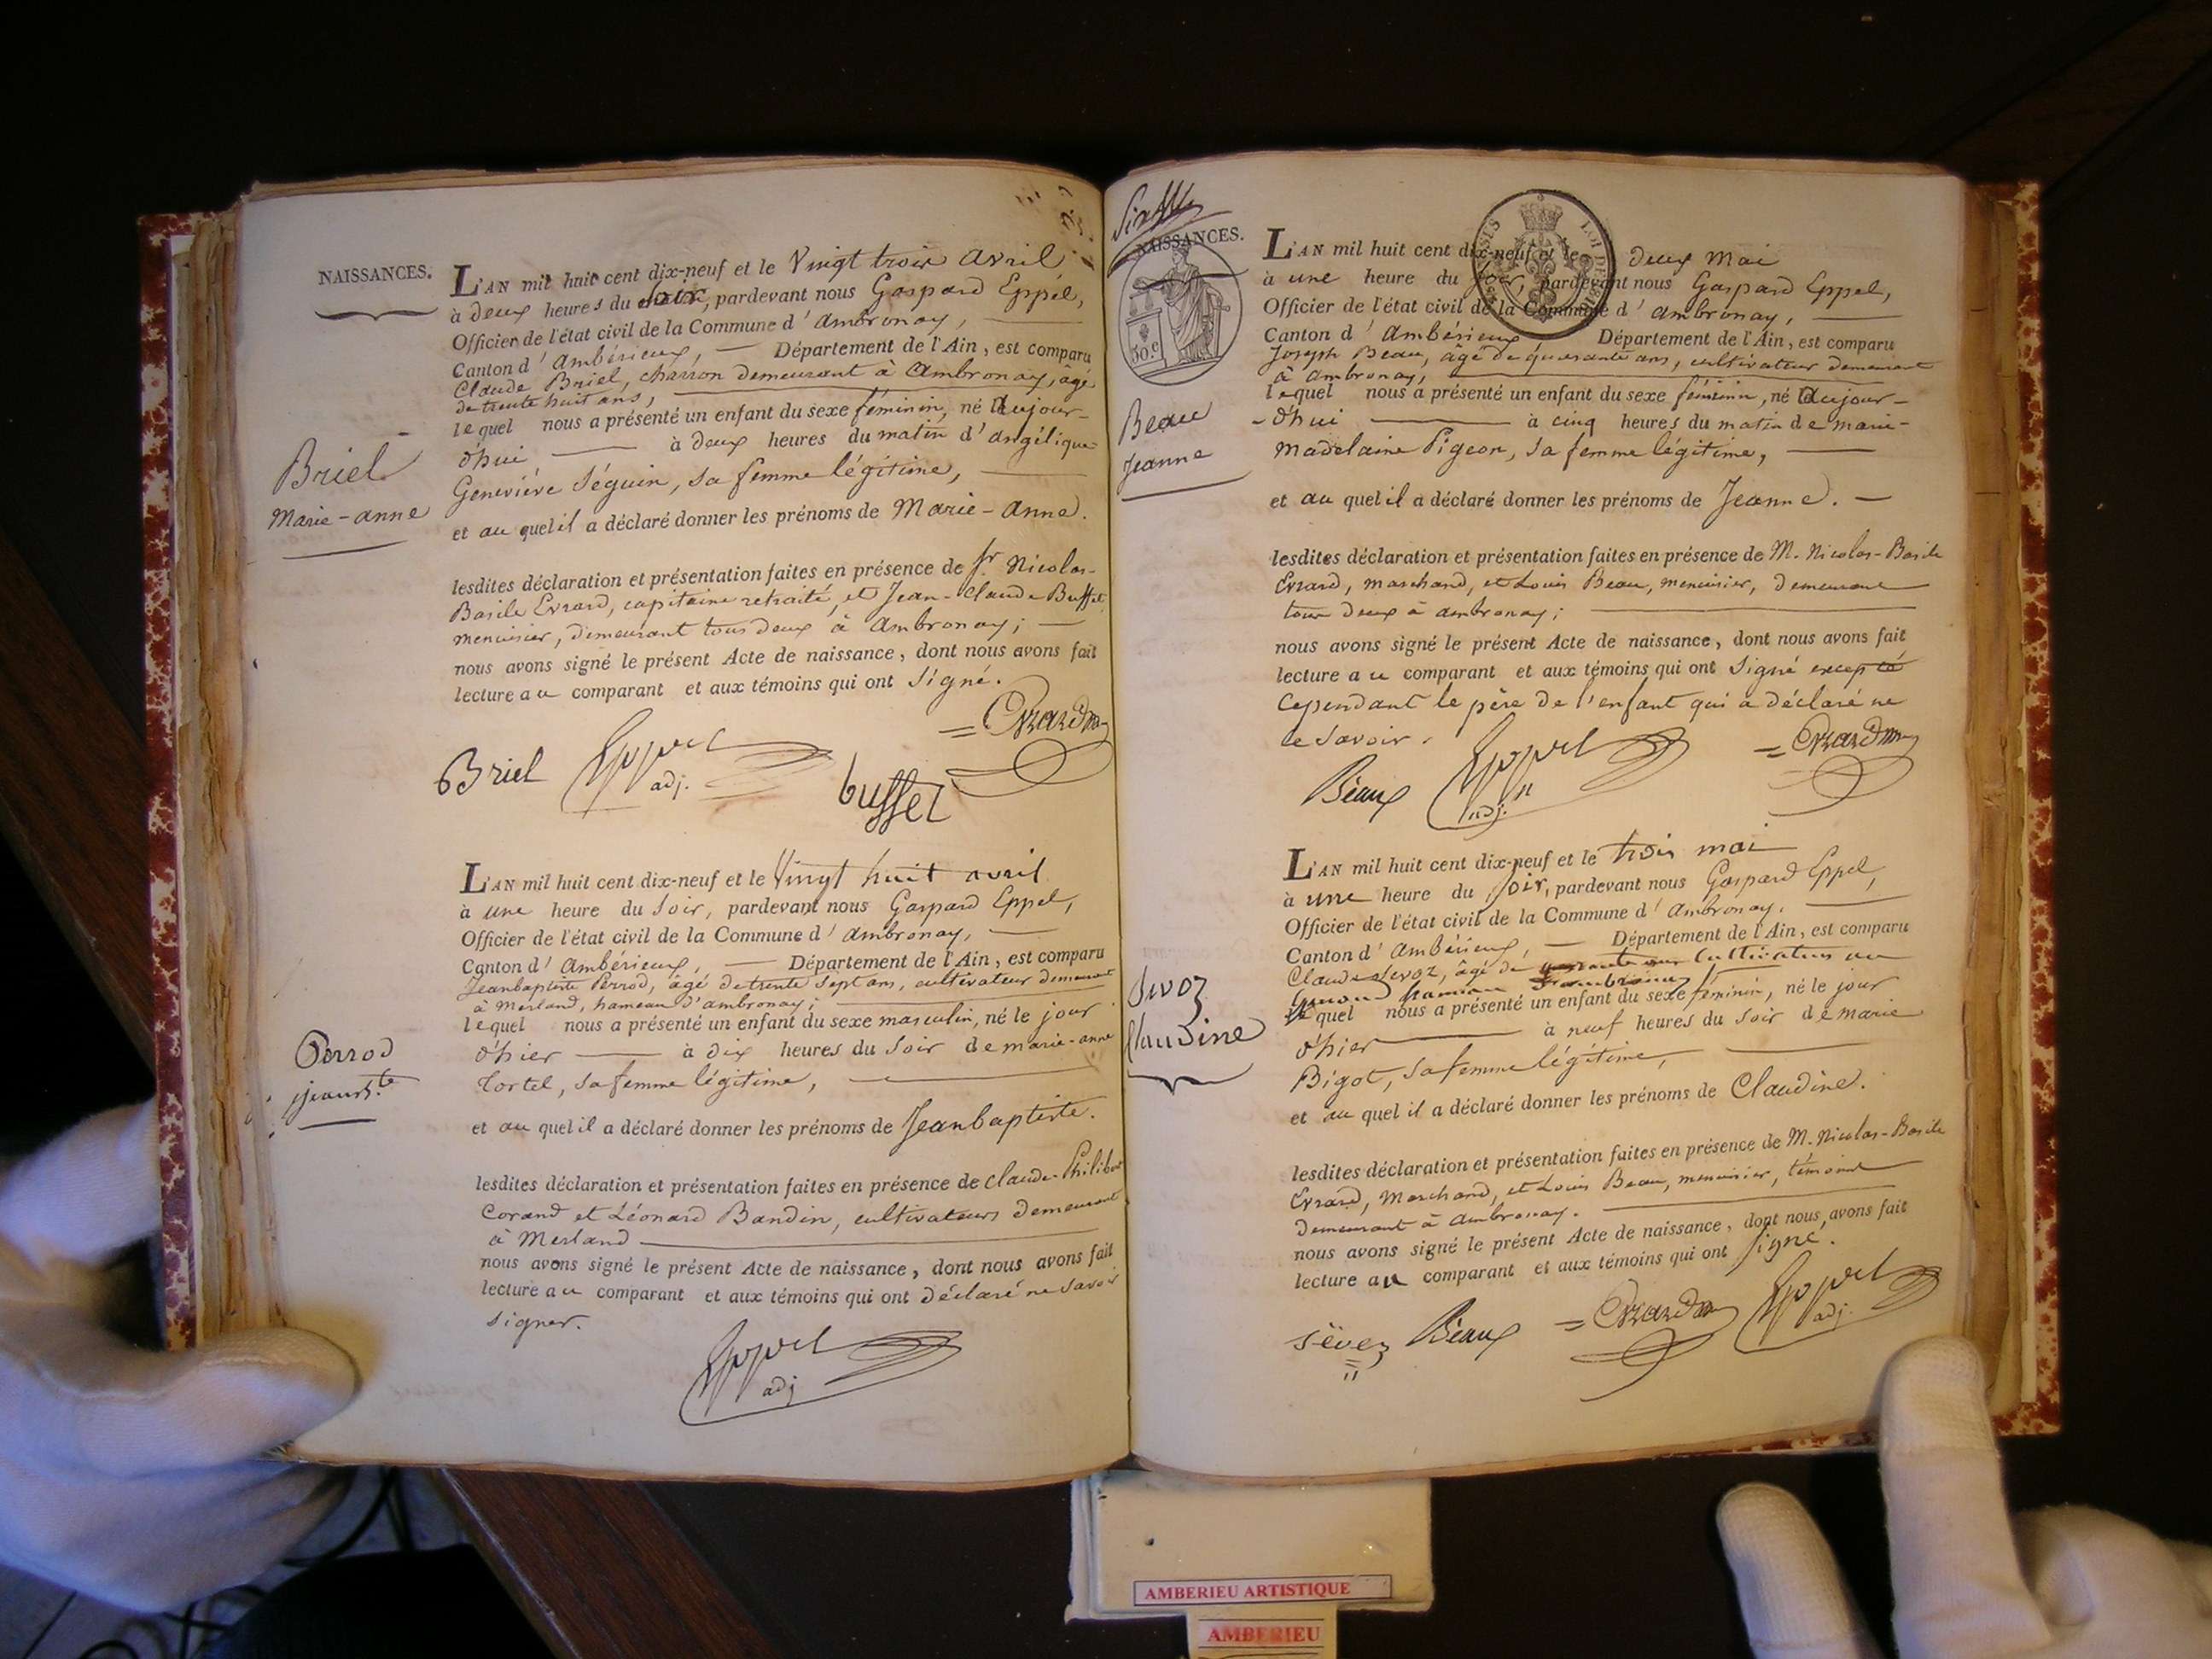 NAISSANCES.
L'AN mil huit cent dix-neuf et le Vingt trois avril
à deux heures du soir, pardevant nous Gaspard Eppel,
Officier de l'état civil de la Commune d'ambronay,
Canton d'ambérieux, Département de l'Ain, est comparu
Claude Briel, charron demeurant à ambronay, âgé
de trente huit ans,
lequel nous a présenté un enfant du sexe féminin, né aujour-
d'hui à deux heures du matin d'angélique
Geneviève Séguin, sa femme légitime,
et au quel il a déclaré donner les prénoms de Marie-anne.
Briel
Marie-anne
lesdites déclaration et présentation faites en présence de Sr. Nicolas-
Basile Evrard, capitaine retraité, et Jean-Claude Buffet,
menuisier, demeurant tous deux à ambronay;
nous avons signé le présent Acte de naissance, dont nous avons fait
lecture au comparant et aux témoins qui ont signé.
Briel Eppel adj. buffet = Evrard
L'AN mil huit cent dix-neuf et le Vingt huit avril
à une heure du soir, pardevant nous Gaspard Eppel,
Officier de l'état civil de la Commune d'ambronay,
Canton d'ambérieux, Département de l'Ain, est comparu
Jeanbaptiste Perrod, âgé de trente sept ans, cultivateur demeurant
à Merland, hameau d'ambronay;
lequel nous a présenté un enfant du sexe masculin, né le jour
d'hier à dix heures du soir de marie-anne
Tortel, sa femme légitime,
et au quel il a déclaré donner les prénoms de Jeanbaptiste.
Perrod
jeanb.te
lesdites déclaration et présentation faites en présence de claude-Philibert
Corand et Léonard Bandin, cultivateurs demeurant
à Merland
nous avons signé le présent Acte de naissance, dont nous avons fait
lecture au comparant et aux témoins qui ont déclaré ne savoir
signer.
Eppel adj
NAISSANCES.
50.c
L'AN mil huit cent dix-neuf et le deux mai
à une heure du soir, pardevant nous Gaspard Eppel,
Officier de l'état civil de la Commune d'ambronay,
Canton d'ambérieux Département de l'Ain, est comparu
Joseph Beau, âgé de quarante ans, cultivateur demeurant
à ambronay,
lequel nous a présenté un enfant du sexe féminin, né aujour-
-d'hui à cinq heures du matin de marie-
madelaine Pigeon, sa femme légitime,
et au quel il a déclaré donner les prénoms de Jeanne.
Beau
Jeanne
lesdites déclaration et présentation faites en présence de M. Nicolas-Basile
Evrard, marchand, et Louis Beau, menuisier, demeurant
tous deux à ambronay;
nous avons signé le présent Acte de naissance, dont nous avons fait
lecture au comparant et aux témoins qui ont signé excepté
cependant le père de l'enfant qui a déclaré ne
le savoir.
Beaux Eppel adj. = Evrard
L'AN mil huit cent dix-neuf et le trois mai
à une heure du soir, pardevant nous Gaspard Eppel,
Officier de l'état civil de la Commune d'ambronay,
Canton d'ambérieux, Département de l'Ain, est comparu
Claude Sevoz, âgé de cultivateur au
hameau
lequel nous a présenté un enfant du sexe féminin, né le jour
d'hier à neuf heures du soir de marie
Bigot, sa femme légitime,
et au quel il a déclaré donner les prénoms de Claudine.
Sevoz
Claudine
lesdites déclaration et présentation faites en présence de M. Nicolas-Basile
Evrard, Marchand, et Louis Beau, menuisier, témoins
demeurant à ambronay.
nous avons signé le présent Acte de naissance, dont nous avons fait
lecture au comparant et aux témoins qui ont signé.
sevez Beaux = Evrard Eppel adj.
AMBERIEU ARTISTIQUE
AMBERIEU